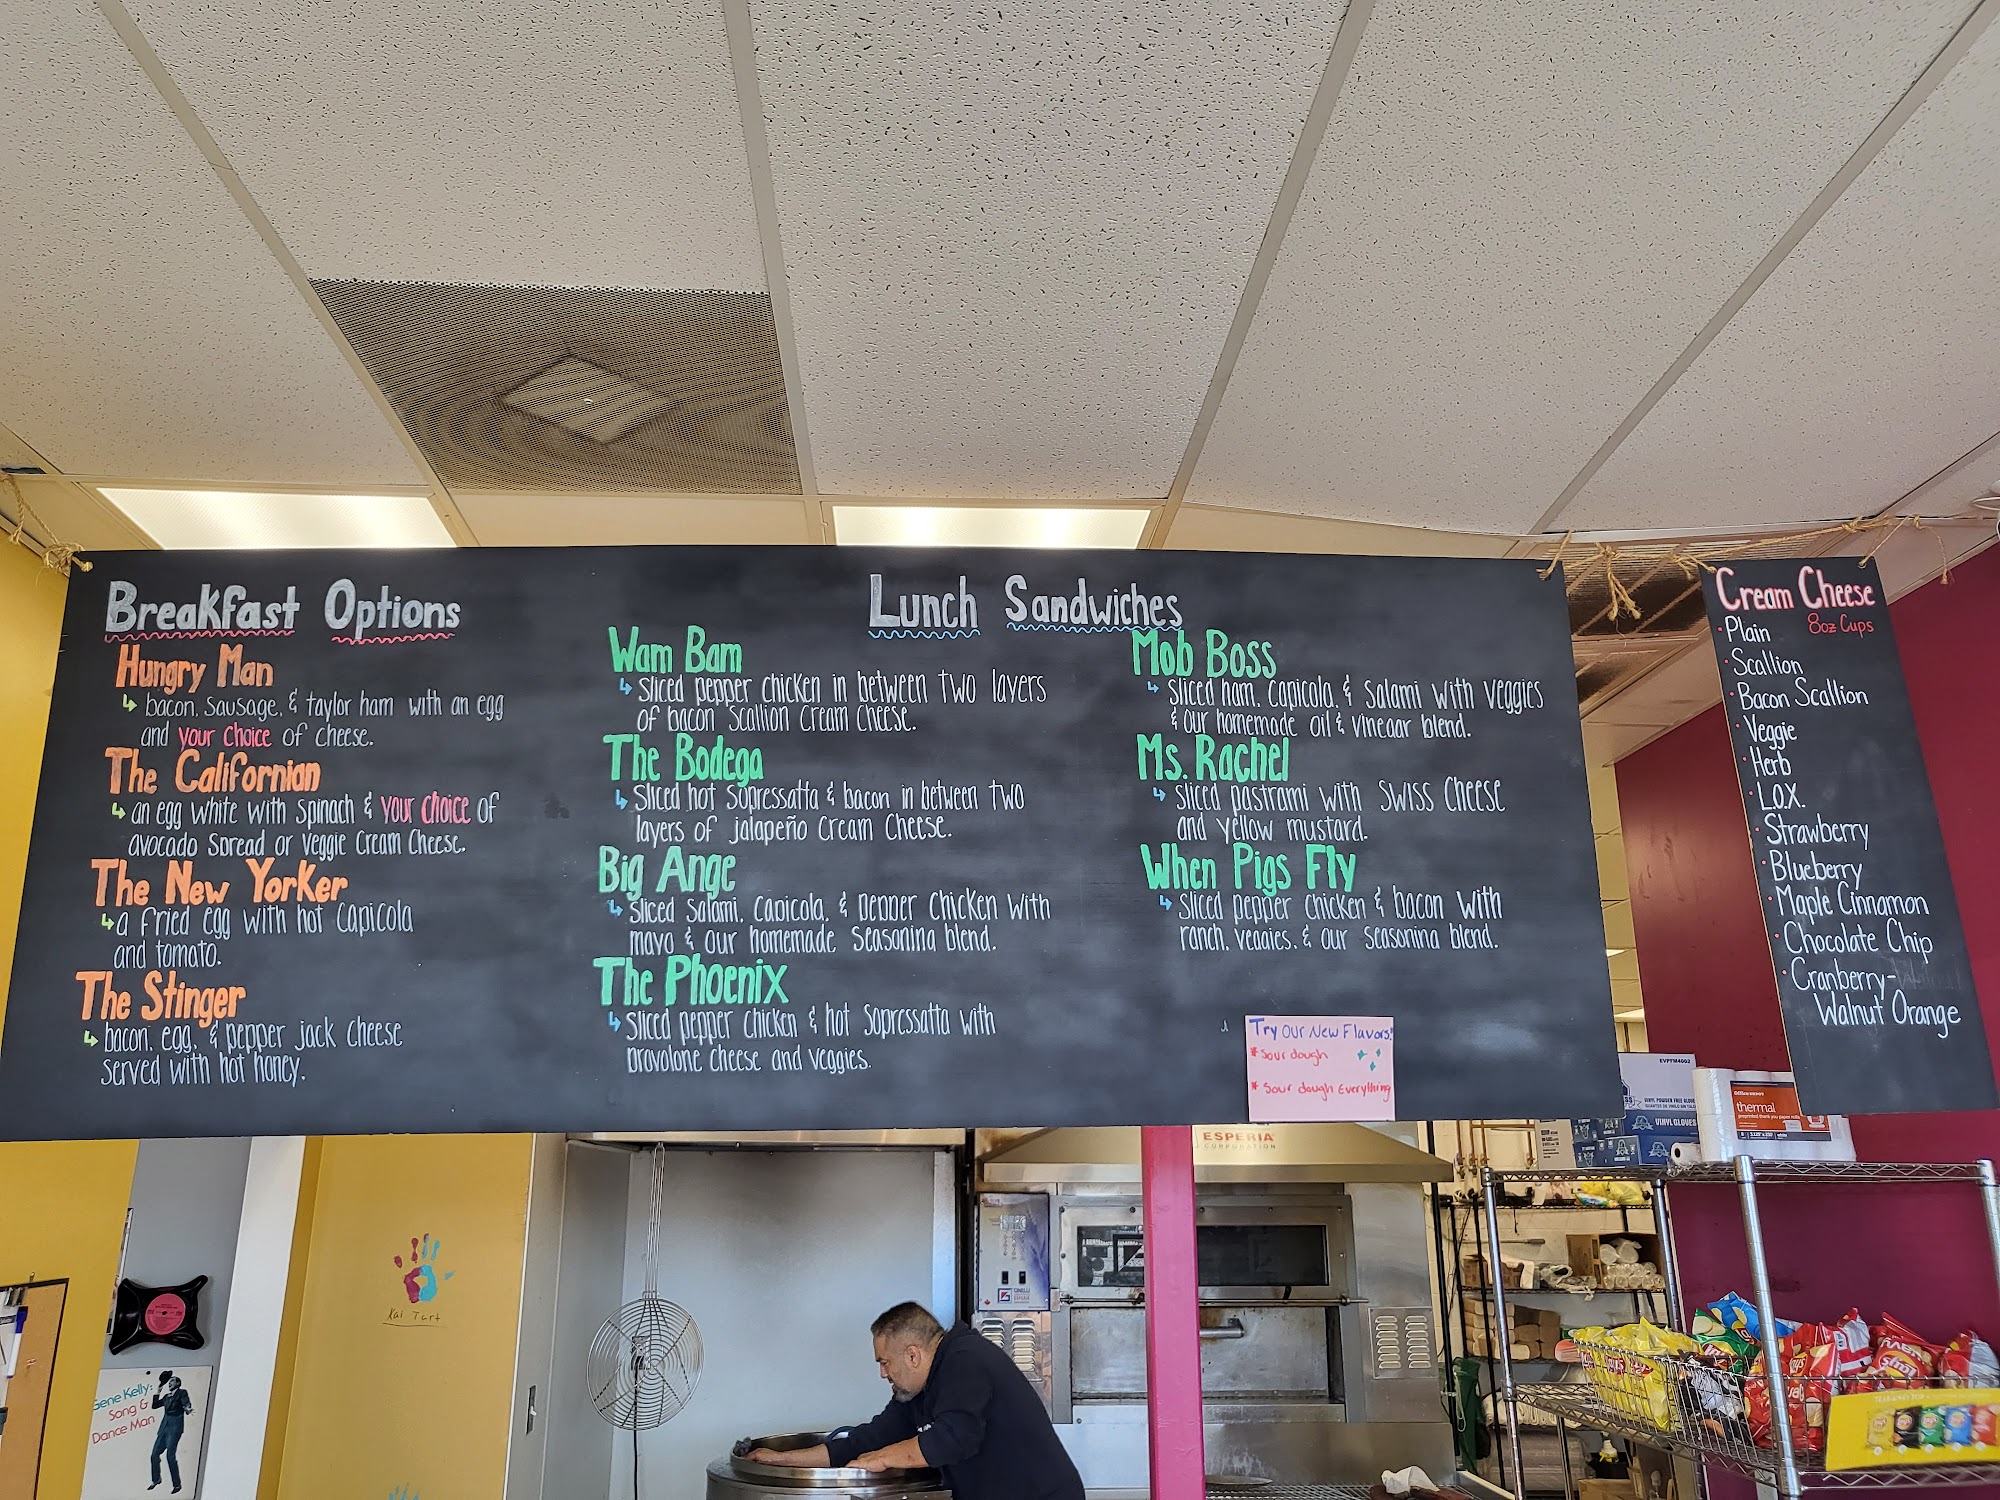 Breakfast Options
Hungry Man
bacon, sausage, & taylor ham with an egg
and your choice of cheese.
The Californian
an egg white with spinach & your choice of
avocado spread or veggie cream cheese.
The New Yorker
a fried egg with hot capicola
and tomato.
The Stinger
bacon, egg, & pepper jack cheese
served with hot honey.
Lunch Sandwiches
Wam Bam
sliced pepper chicken in between two layers
of bacon scallion cream cheese.
The Bodega
sliced hot sopressatta & bacon in between two
layers of jalapeño cream cheese.
Big Ange
sliced salami, capicola, & pepper chicken with
mayo & our homemade seasoning blend.
The Phoenix
sliced pepper chicken & hot sopressatta with
provolone cheese and veggies.
Mob Boss
sliced ham, capicola, & salami with veggies
& our homemade oil & vinegar blend.
Ms. Rachel
sliced pastrami with swiss cheese
and yellow mustard.
When Pigs Fly
sliced pepper chicken & bacon with
ranch, veggies, & our seasoning blend.
Try our New Flavors!
* Sour dough
* Sour dough Everything
Cream Cheese
8oz Cups
Plain
Scallion
Bacon Scallion
Veggie
Herb
L.O.X.
Strawberry
Blueberry
Maple Cinnamon
Chocolate Chip
Cranberry-
Walnut Orange
ESPERIA
CORPORATION
EVPFM4002
VINYL GLOVES
Office DEPOT
thermal
Kai Tart
Gene Kelly:
Song &
Dance Man